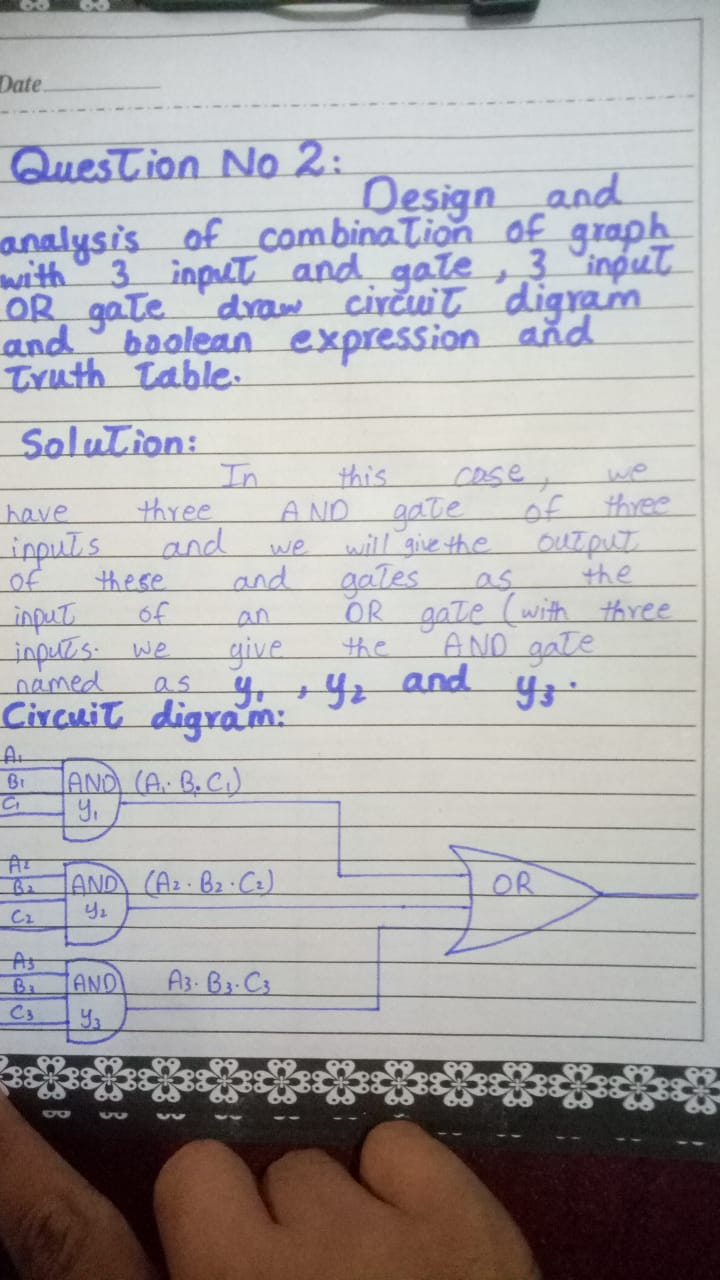 Date
Question No 2:
Design and
analysis of combination of graph
with 3 input and gate, 3 input
OR gate draw circuit digram
and boolean expression and
Truth Table.
Solution:
In this case, we
have three AND gate of three
inputs and we will give the output
of these and gates as the
input of an OR gate (with three
inputs. we give the AND gate
named as y₁, y₂ and y₃.
Circuit digram:
A₁
B₁ AND (A₁. B₁. C₁)
C₁ y₁
A₂
B₂ AND (A₂. B₂. C₂) OR
C₂ y₂
A₃
B₃ AND A₃. B₃. C₃
C₃ y₃